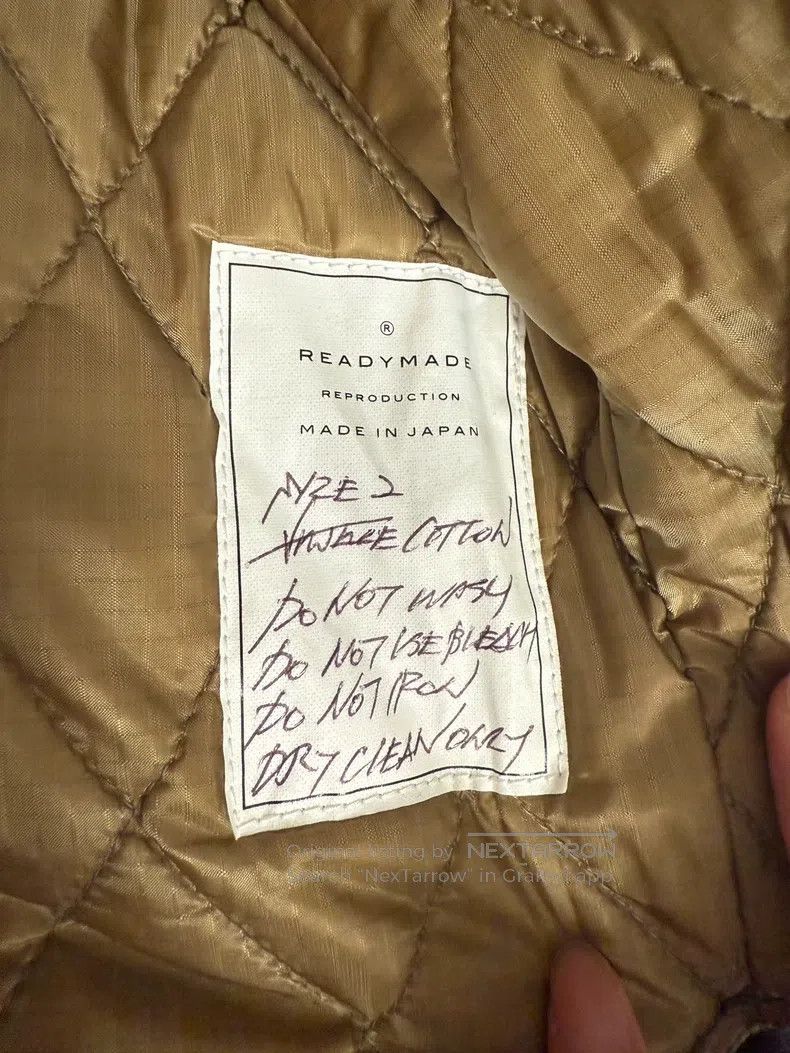 ®
READYMADE
REPRODUCTION
MADE IN JAPAN
SIZE 2
COTTON
DO NOT WASH
DO NOT USE BLEACH
DO NOT IRON
DRY CLEAN ONLY
Original listing by NEXTARROW
Search "NexTarrow" in Grailed app